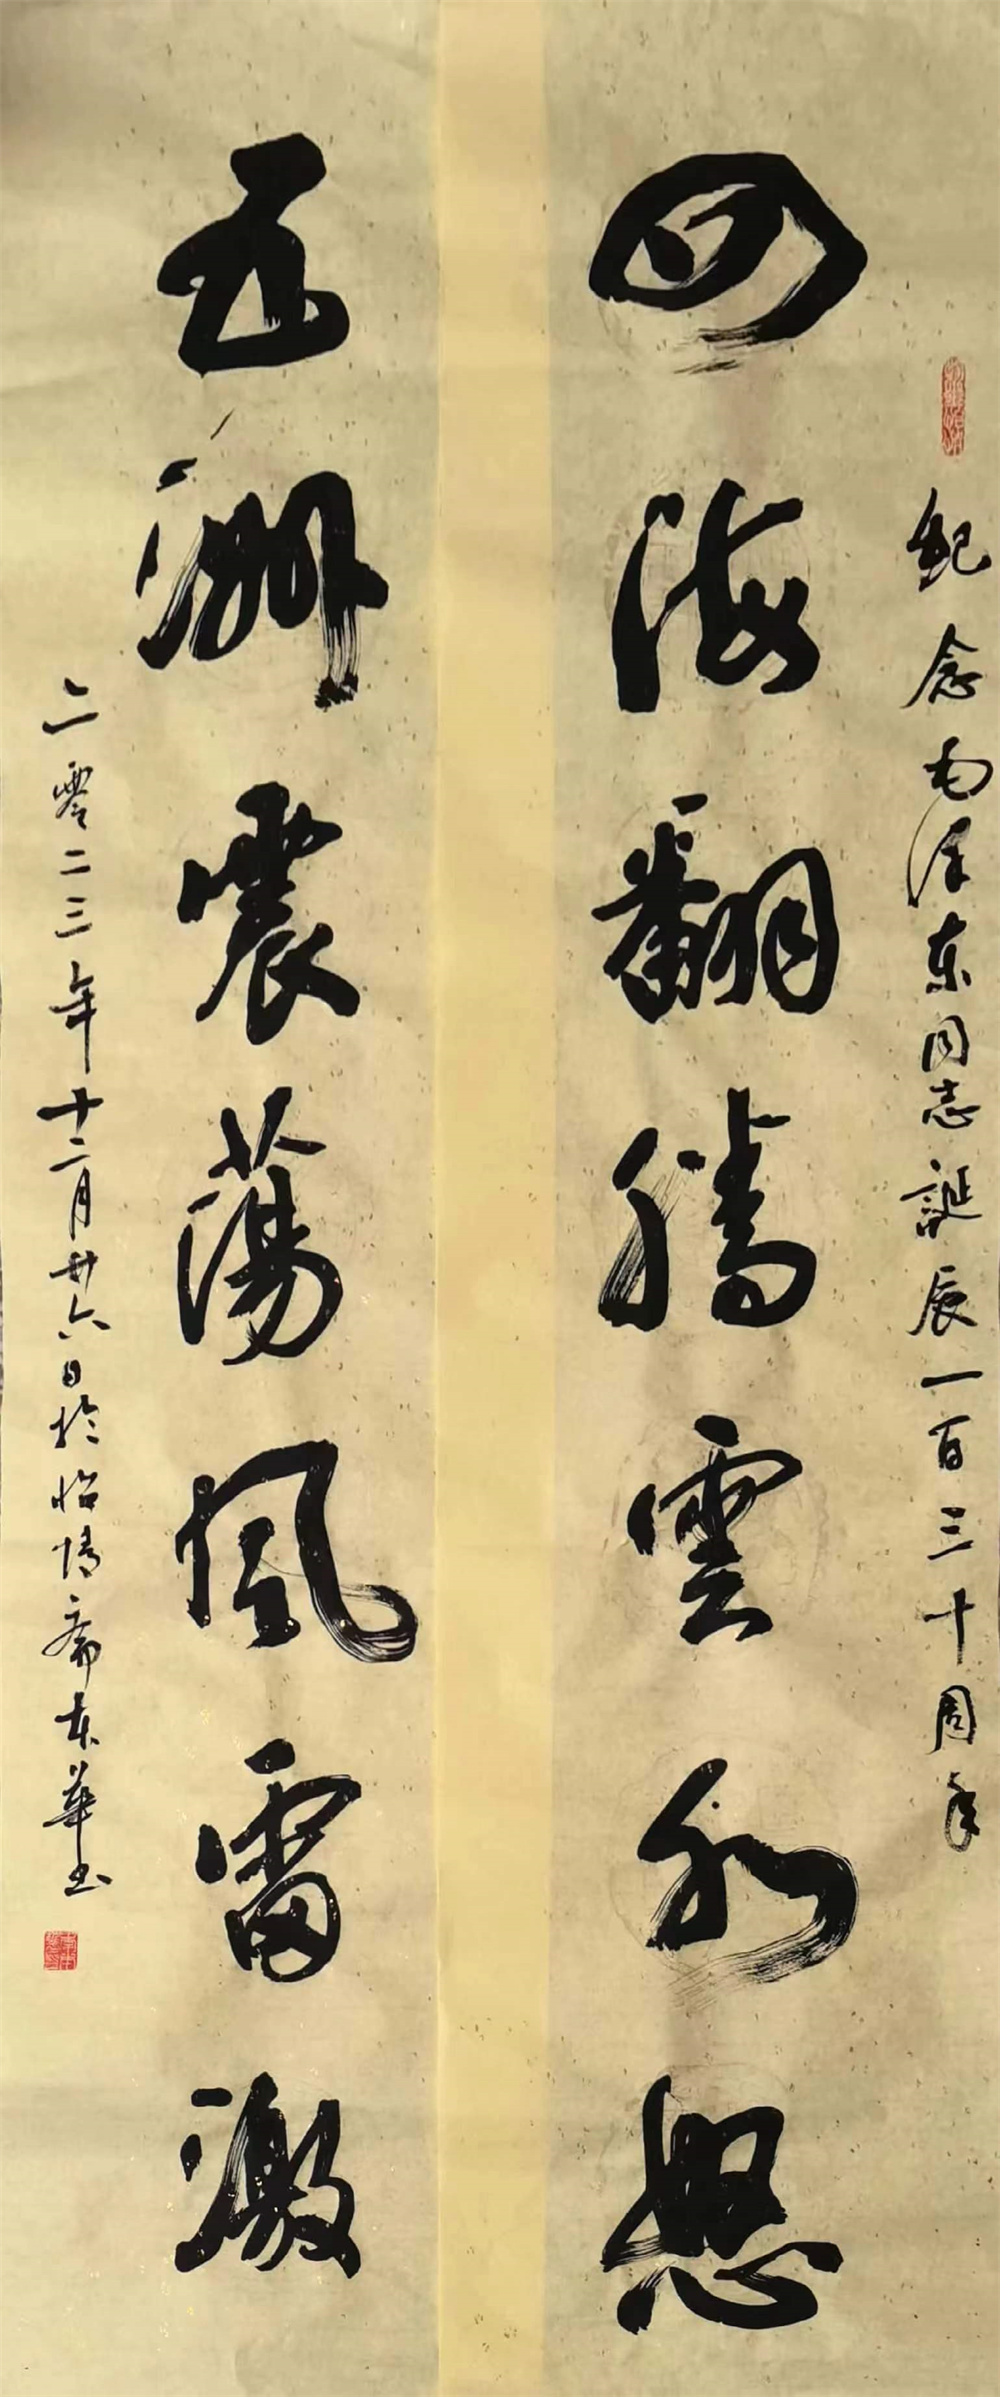 纪念毛泽东同志誕辰一百三十周年
四海翻腾雲水怒
五洲震蕩風雷激
二零二三年十二月廿六日於怡情斋东華书